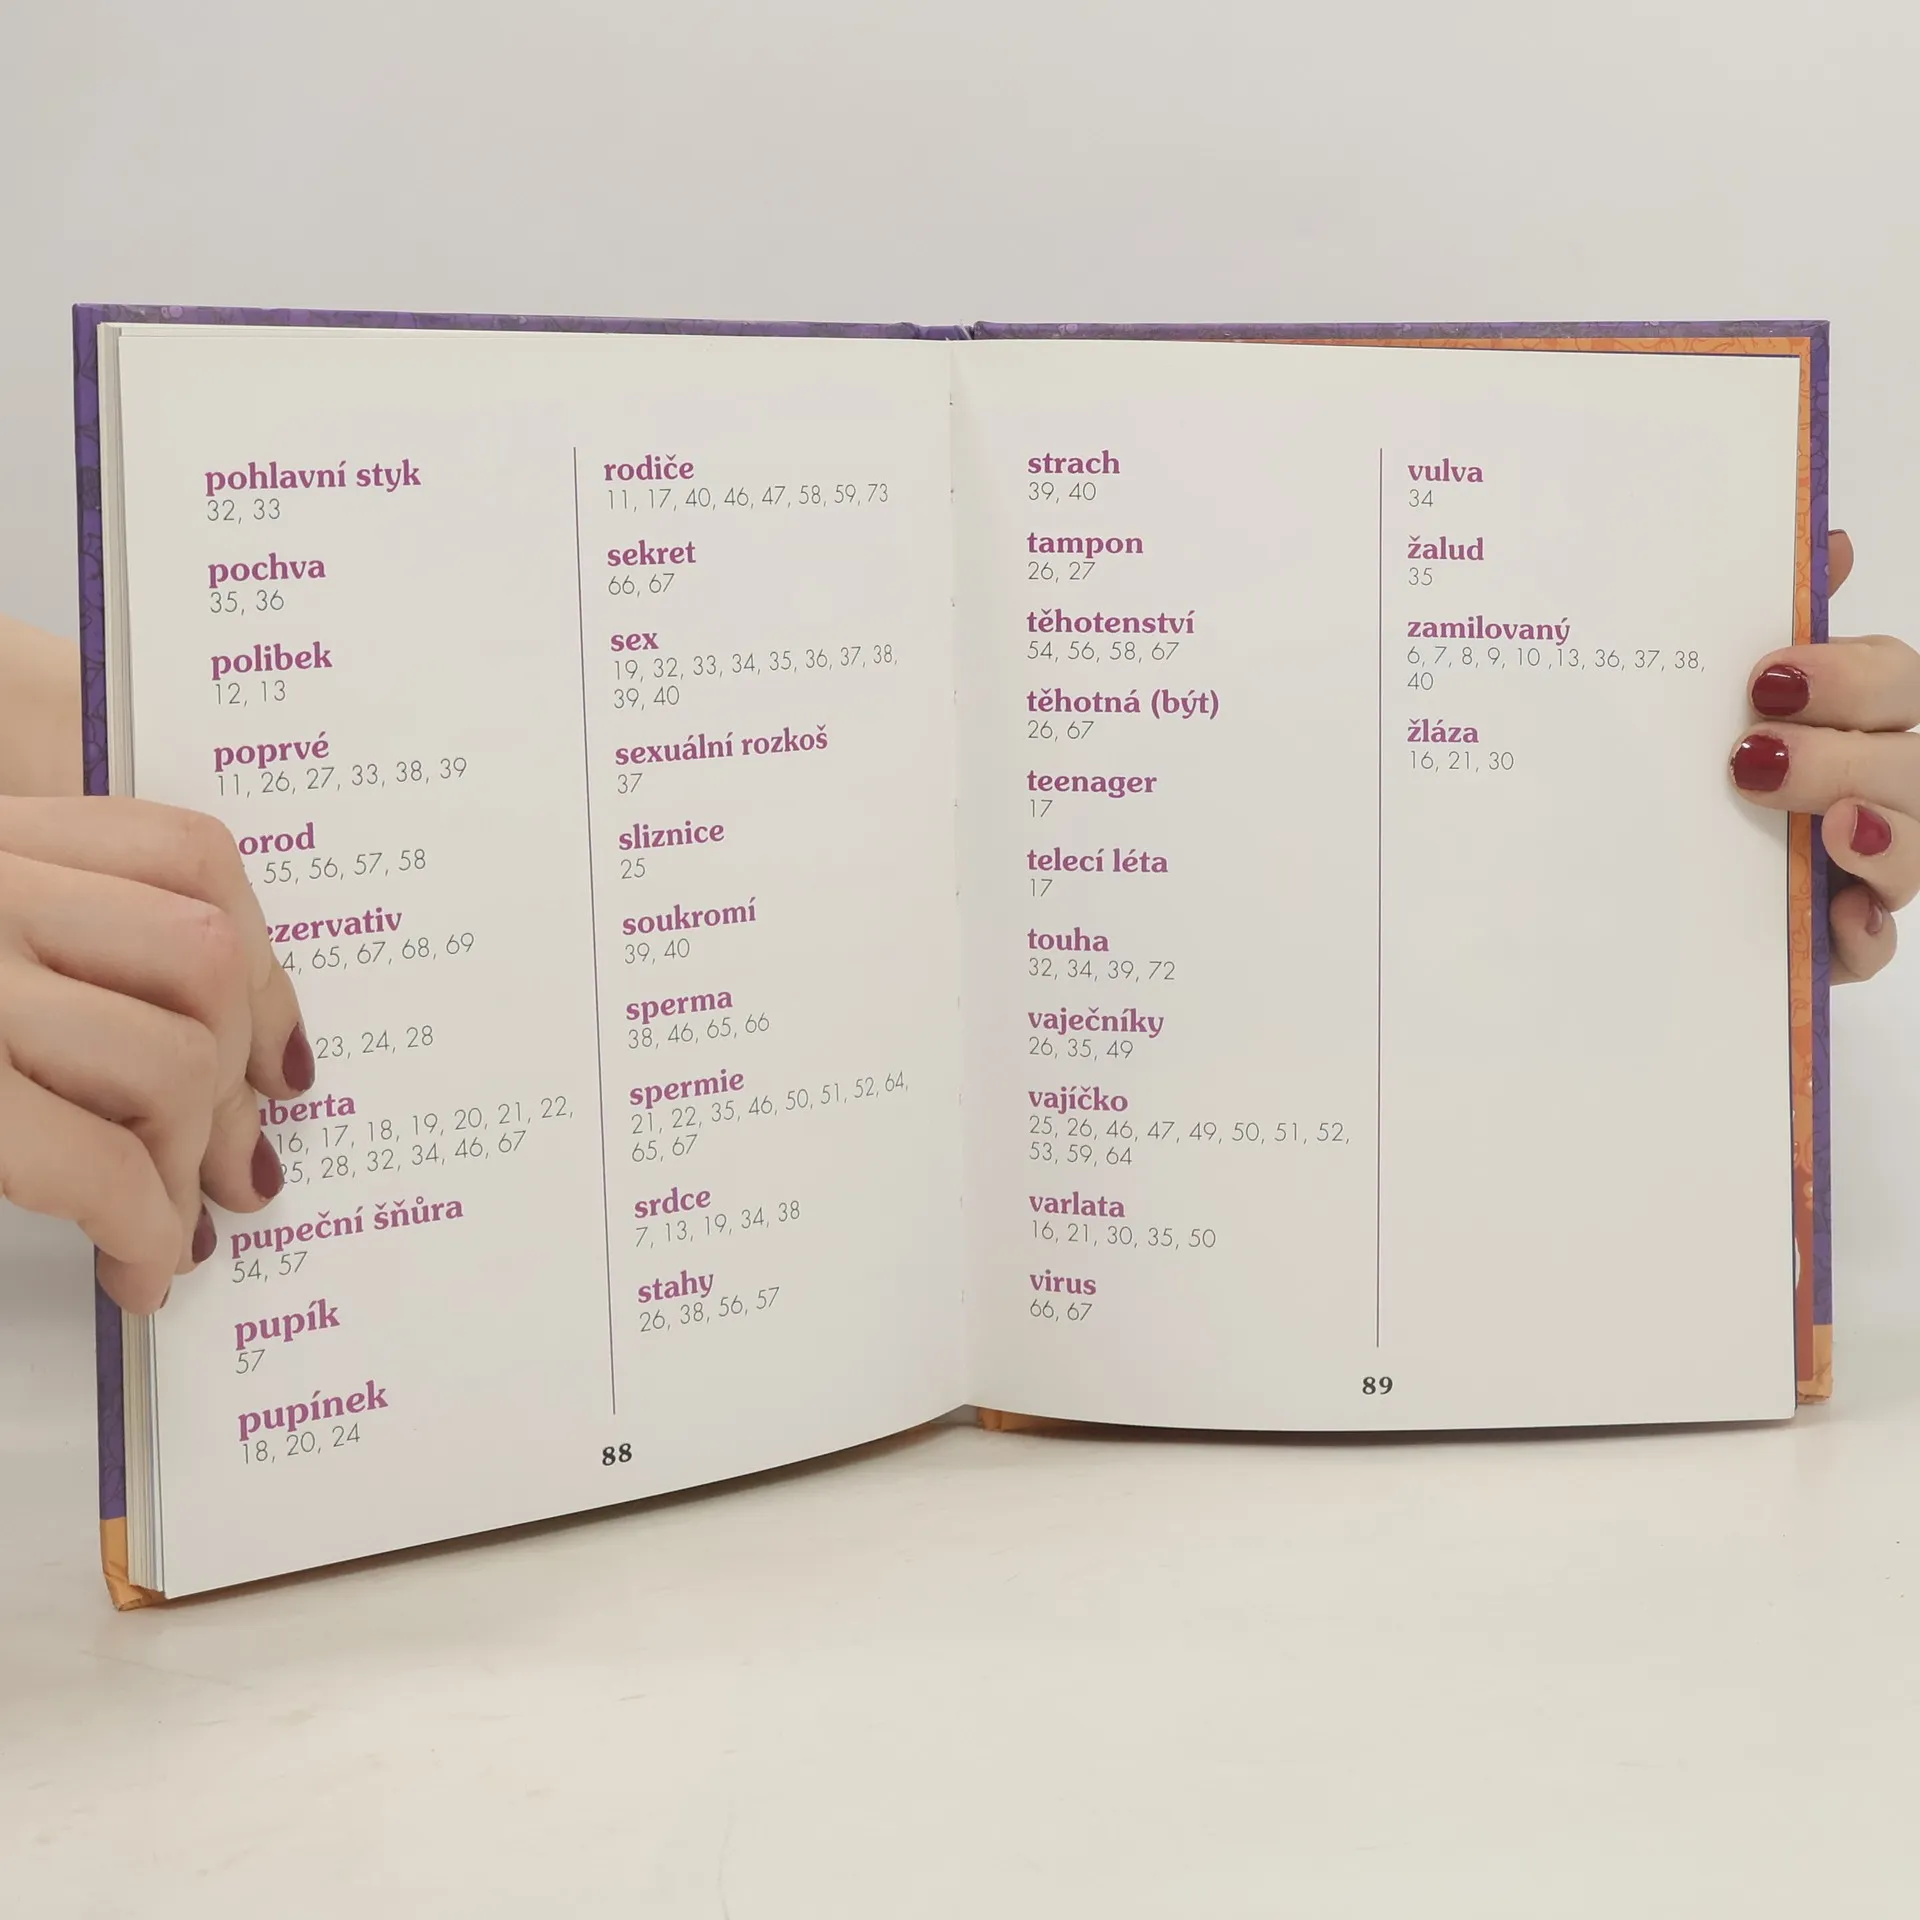 pohlavní styk
32, 33
pochva
35, 36
polibek
12, 13
poprvé
11, 26, 27, 33, 38, 39
55, 56, 57, 58
65, 67, 68, 69
23, 24, 28
16, 17, 18, 19, 20, 21, 22,
28, 32, 34, 46, 67
pupeční šňůra
54, 57
pupík
57
pupínek
18, 20, 24
rodiče
11, 17, 40, 46, 47, 58, 59, 73
sekret
66, 67
sex
19, 32, 33, 34, 35, 36, 37, 38,
39, 40
sexuální rozkoš
37
sliznice
25
soukromí
39, 40
sperma
38, 46, 65, 66
spermie
21, 22, 35, 46, 50, 51, 52, 64,
65, 67
srdce
7, 13, 19, 34, 38
stahy
26, 38, 56, 57
88
strach
39, 40
tampon
26, 27
těhotenství
54, 56, 58, 67
těhotná (být)
26, 67
teenager
17
telecí léta
17
touha
32, 34, 39, 72
vaječníky
26, 35, 49
vajíčko
25, 26, 46, 47, 49, 50, 51, 52,
53, 59, 64
varlata
16, 21, 30, 35, 50
virus
66, 67
vulva
34
žalud
35
zamilovaný
6, 7, 8, 9, 10 ,13, 36, 37, 38,
40
žláza
16, 21, 30
89